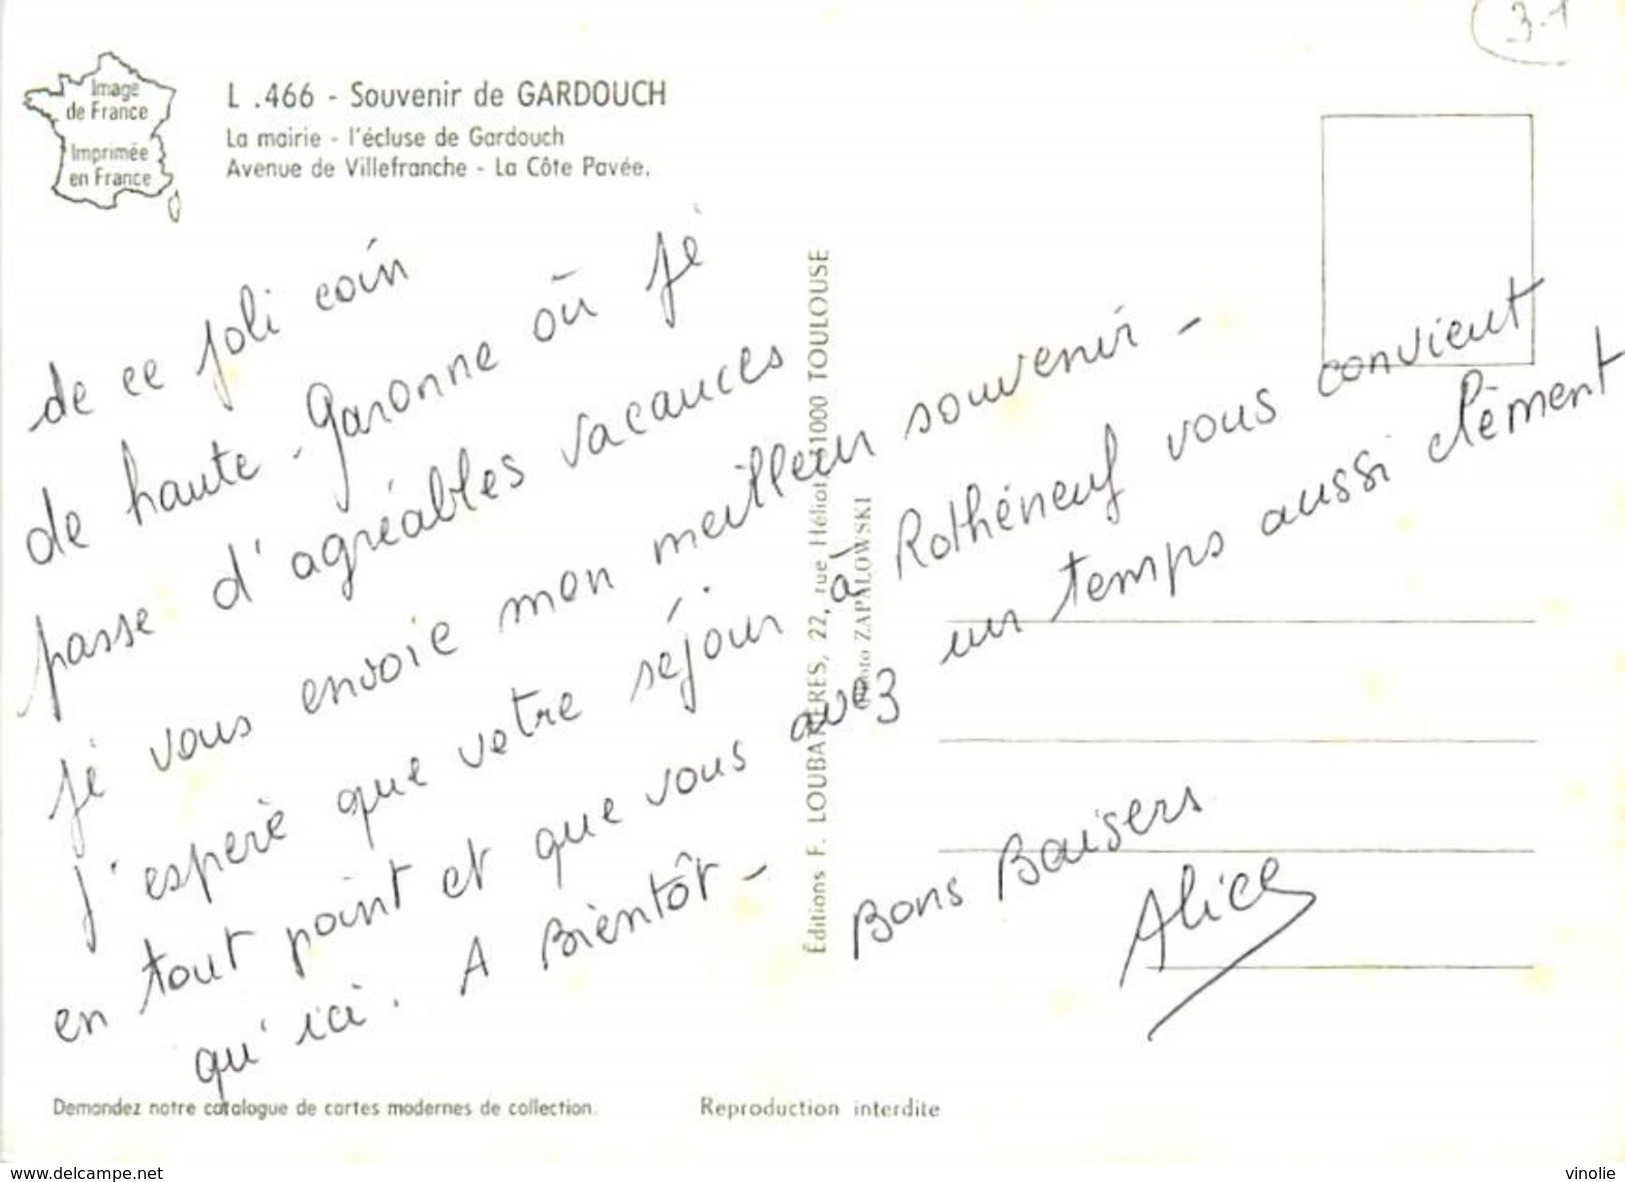 3-1
Image
de France
Imprimée
en France
L .466 - Souvenir de GARDOUCH
La mairie - l'écluse de Gardouch
Avenue de Villefranche - La Côte Pavée.
de ce joli coin
de haute-Garonne où je
passe d'agréables vacances
je vous envoie mon meilleur souvenir -
j'espère que votre séjour à Rothéneuf vous convient
en tout point et que vous avez un temps aussi clément
qu'ici. A Bientôt -
Bons Baisers
Alice
Éditions F. LOUBATIÈRES, 22, rue Héliot, 31000 TOULOUSE
Photo ZAPALOWSKI
Demandez notre catalogue de cartes modernes de collection.
Reproduction interdite
www.delcampe.net
vinolie